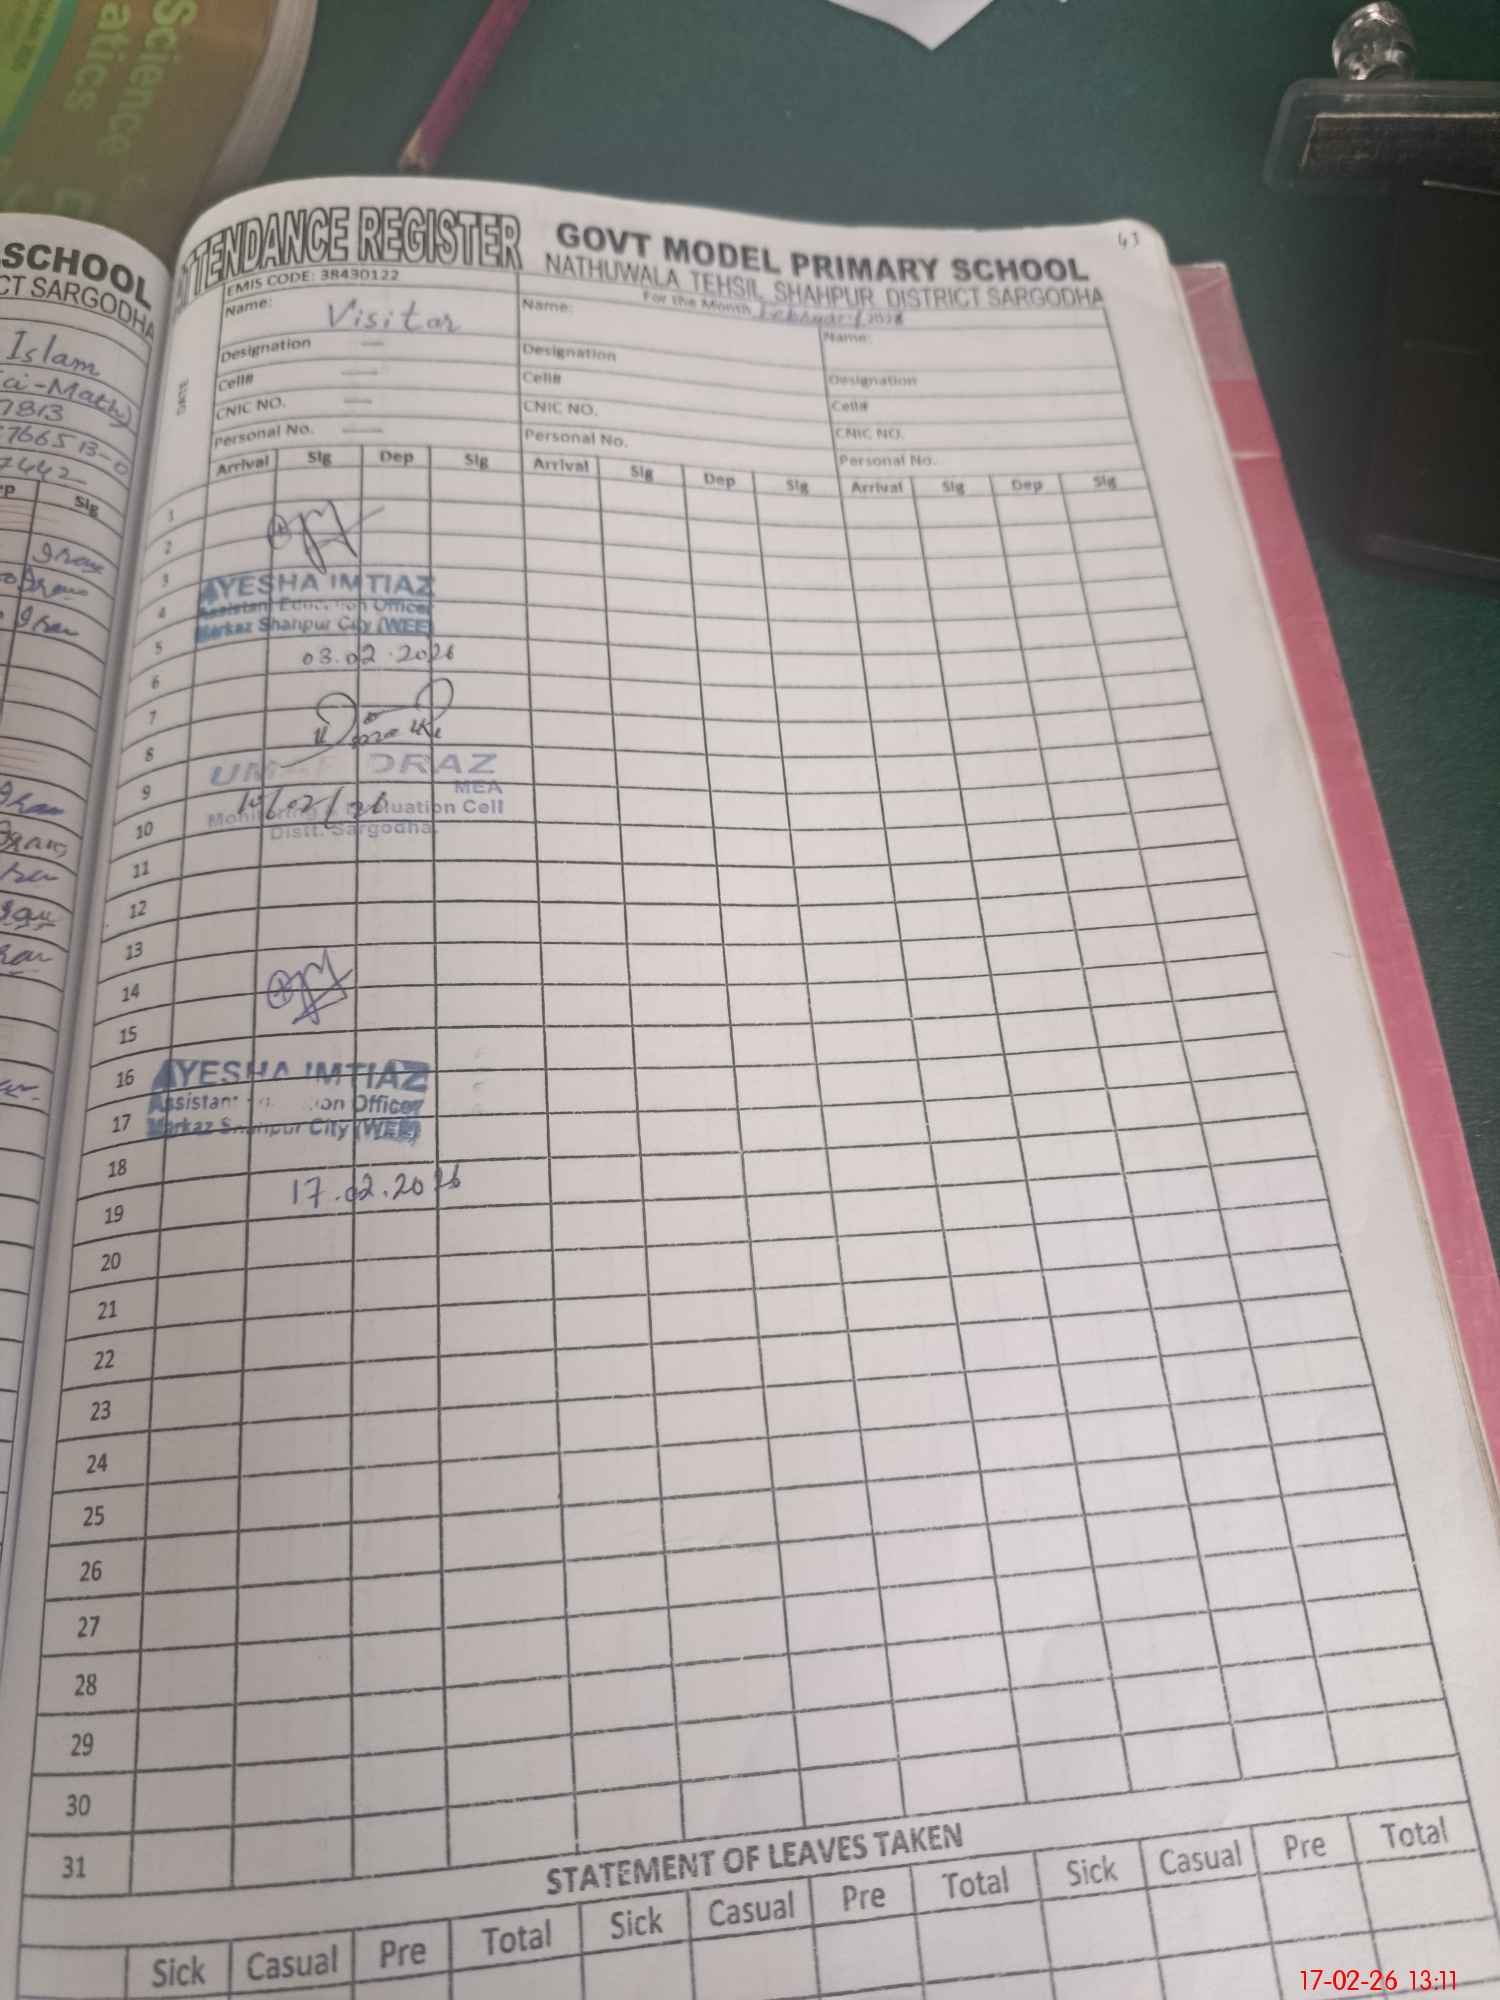 Science
atics
SCHOOL
CT SARGODHA
Islam
7813
76651 3-0
7442
Sig
ATTENDANCE REGISTER
GOVT MODEL PRIMARY SCHOOL
43
NATHUWALA TEHSIL SHAHPUR DISTRICT SARGODHA
EMIS CODE: 38430122
For the Month February 2026
Name: Visitor Name: Name:
Designation — Designation Designation
Cell# — Cell# Cell#
CNIC NO. — CNIC NO. CNIC NO.
Personal No. — Personal No. Personal No.
Arrival Sig Dep Sig Arrival Sig Dep Sig Arrival Sig Dep Sig
1
2
3
AYESHA IMTIAZ
4
Assistant Education Officer
Markaz Shahpur City (WEE)
5
03.02.2026
6
7
8
UM DRAZ
MEA
9
10/02/26
Monitoring & Evaluation Cell
10
Distt. Sargodha
11
12
13
14
15
16 AYESHA IMTIAZ
Assistant on Officer
17 Markaz Shahpur City (WEE)
18
17.02.2026
19
20
21
22
23
24
25
26
27
28
29
30
31
STATEMENT OF LEAVES TAKEN
Sick Casual Pre Total Sick Casual Pre Total Sick Casual Pre Total
17-02-26 13:11